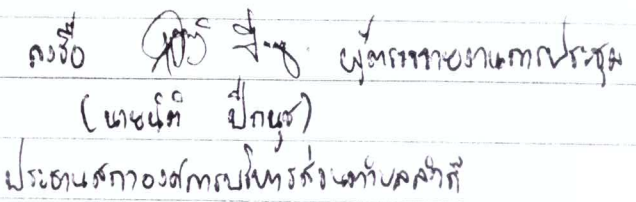 ลงชื่อ ผู้ตรวจรายงานการประชุม
(นายนิติ ปีกนุช)
ประธานสภาองค์การบริหารส่วนตำบลสำถี